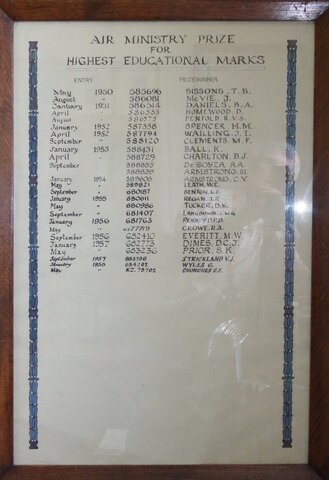 AIR MINISTRY PRIZE
FOR
HIGHEST EDUCATIONAL MARKS
ENTRY PRIZEWINNER
May 1950 585696 SISSONS, T.B.
August " 586081 McVIE, J.
January 1951 586314 DANIELS, B.A.
April " HOMEWOOD. D.
August " PENFOLD. R.V.S.
January 1952 587358 SPENCER H.M.
April 1952 587794 WAILLING, J. T.
September 588120 CLEMENTS, M. F.
January 1953 588431 BALL, K.
April 588729 CHARLTON, B.J.
September 588855 De SOUZA, A.A.
588839 ARMSTRONG, M.
January 1954 589605 ARMSTRONG, C.V.
May " 589821 LEATH, W.E.
September " BENTON,
January 1955 REGAN, T.P.
May " 680986 TUCKER, D.N.
September 681407 LANGDOWN,
January 1956 681763 PENNEY,
May CROWE, R.A.
September 1956 682410 EVERITT, M.W.
January 1957 682773 DIMES, D.C.J.
May 683236 PRIOR, S.K.
September 1957 683780 STRICKLAND V.J.
January 1958 684202 WYLES G.
May " N.Z. 75702 CHURCHES